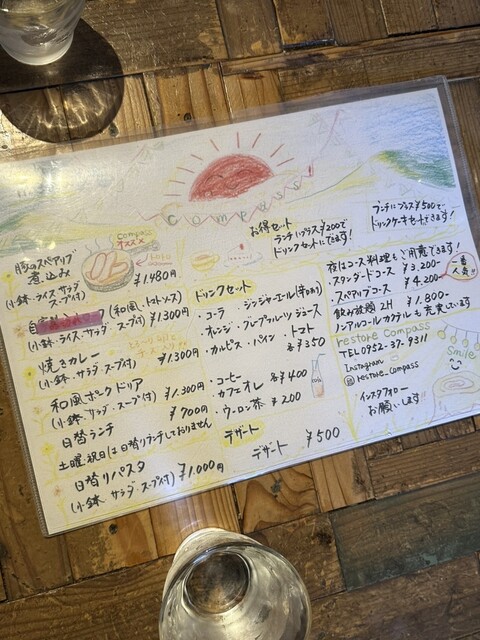 compass
お得セット
ランチにプラス¥200で
ドリンクセットにできます!
ランチにプラス¥500で
ドリンクケーキセットできます!
compass
オススメ
豚のスペアリブ
煮込み
¥1.480円
(小鉢・ライス・サラダ
スープ付)
(和風・トマトソース)
(小鉢・ライス・サラダ・スープ付) ¥1300円
焼きカレー
(小鉢・サラダ・スープ付) ¥1.300円
和風ポークドリア
(小鉢・サラダ・スープ付) ¥1.300円
日替ランチ ¥900円
土曜、祝日は日替りランチしておりません
日替りパスタ
(小鉢・サラダ・スープ付) ¥1.000円
ドリンクセット
・コーラ ・ジンジャーエール(辛口あり)
・オレンジ・グレープフルーツジュース
・カルピス・パイン・トマト
各¥350
・コーヒー
・カフェオレ 各¥400
・ウーロン茶 ¥200
デザート
デザート ¥500
夜はコース料理もご用意できます!
・スタンダードコース ¥3.200-
・スペアリブコース ¥4.200-
一番
人気!!
飲み放題 2H ¥1.800-
ノンアルコールカクテルも充実しています
restore compass
TEL 0952-37-9311
Instagram
restore_compass
インスタフォロー
お願いします!!
Smile